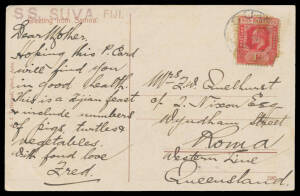 S.S. SUVA, FIJI.
Greeting from Samoa.
Dear Mother,
Hoping this P. Card
will find you
in good health.
This is a Fijian feast
& include numbers
of pigs, turtles &
vegetables.
With fond love
Fred.
Mrs
of J. Nixon Esq
Wyndham Street
Roma
Western Line
Queensland